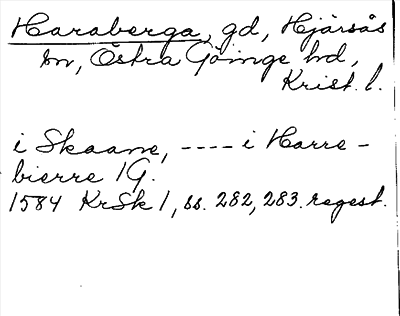 Haraberga, gd, Hjärsås
sn, Östra Göinge hd,
Krist. l.
i Skaane, ---- i Harre-
bierre 1G.
1584 KrSk 1, ss. 282, 283. regest.